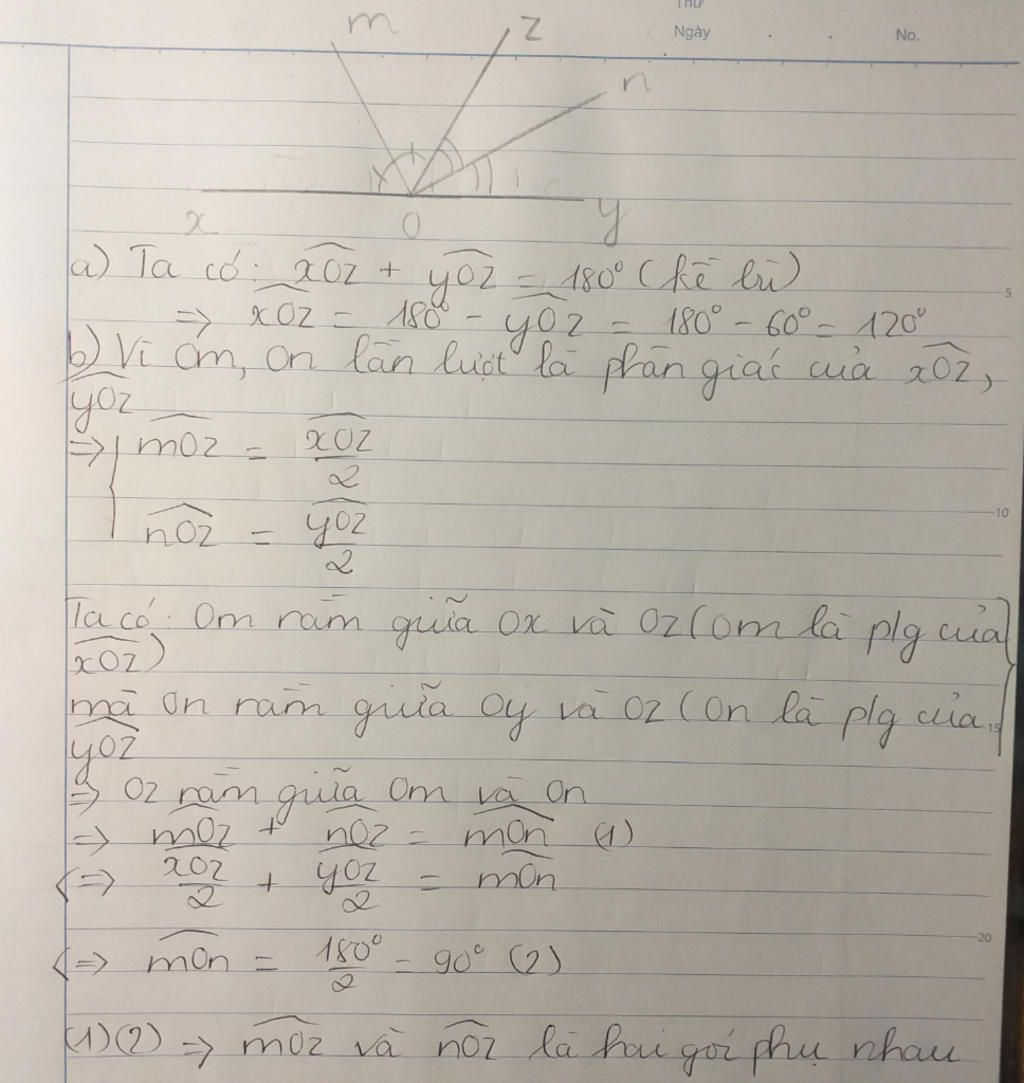 Thứ
Ngày . . No.
m z n
x O y
a) Ta có: xOz + yOz = 180° (kề bù)
5
=> xOz = 180° - yOz = 180° - 60° = 120°
b) Vì Om, On lần lượt là phân giác của xOz,
yOz
=> { mOz = xOz/2
10
nOz = yOz/2
Ta có: Om nằm giữa Ox và Oz (Om là p/g của
xOz)
mà On nằm giữa Oy và Oz (On là p/g của
15
yOz
=> Oz nằm giữa Om và On
=> mOz + nOz = mOn (1)
<=> xOz/2 + yOz/2 = mOn
20
<=> mOn = 180°/2 = 90° (2)
(1)(2) => mOz và nOz là hai góc phụ nhau